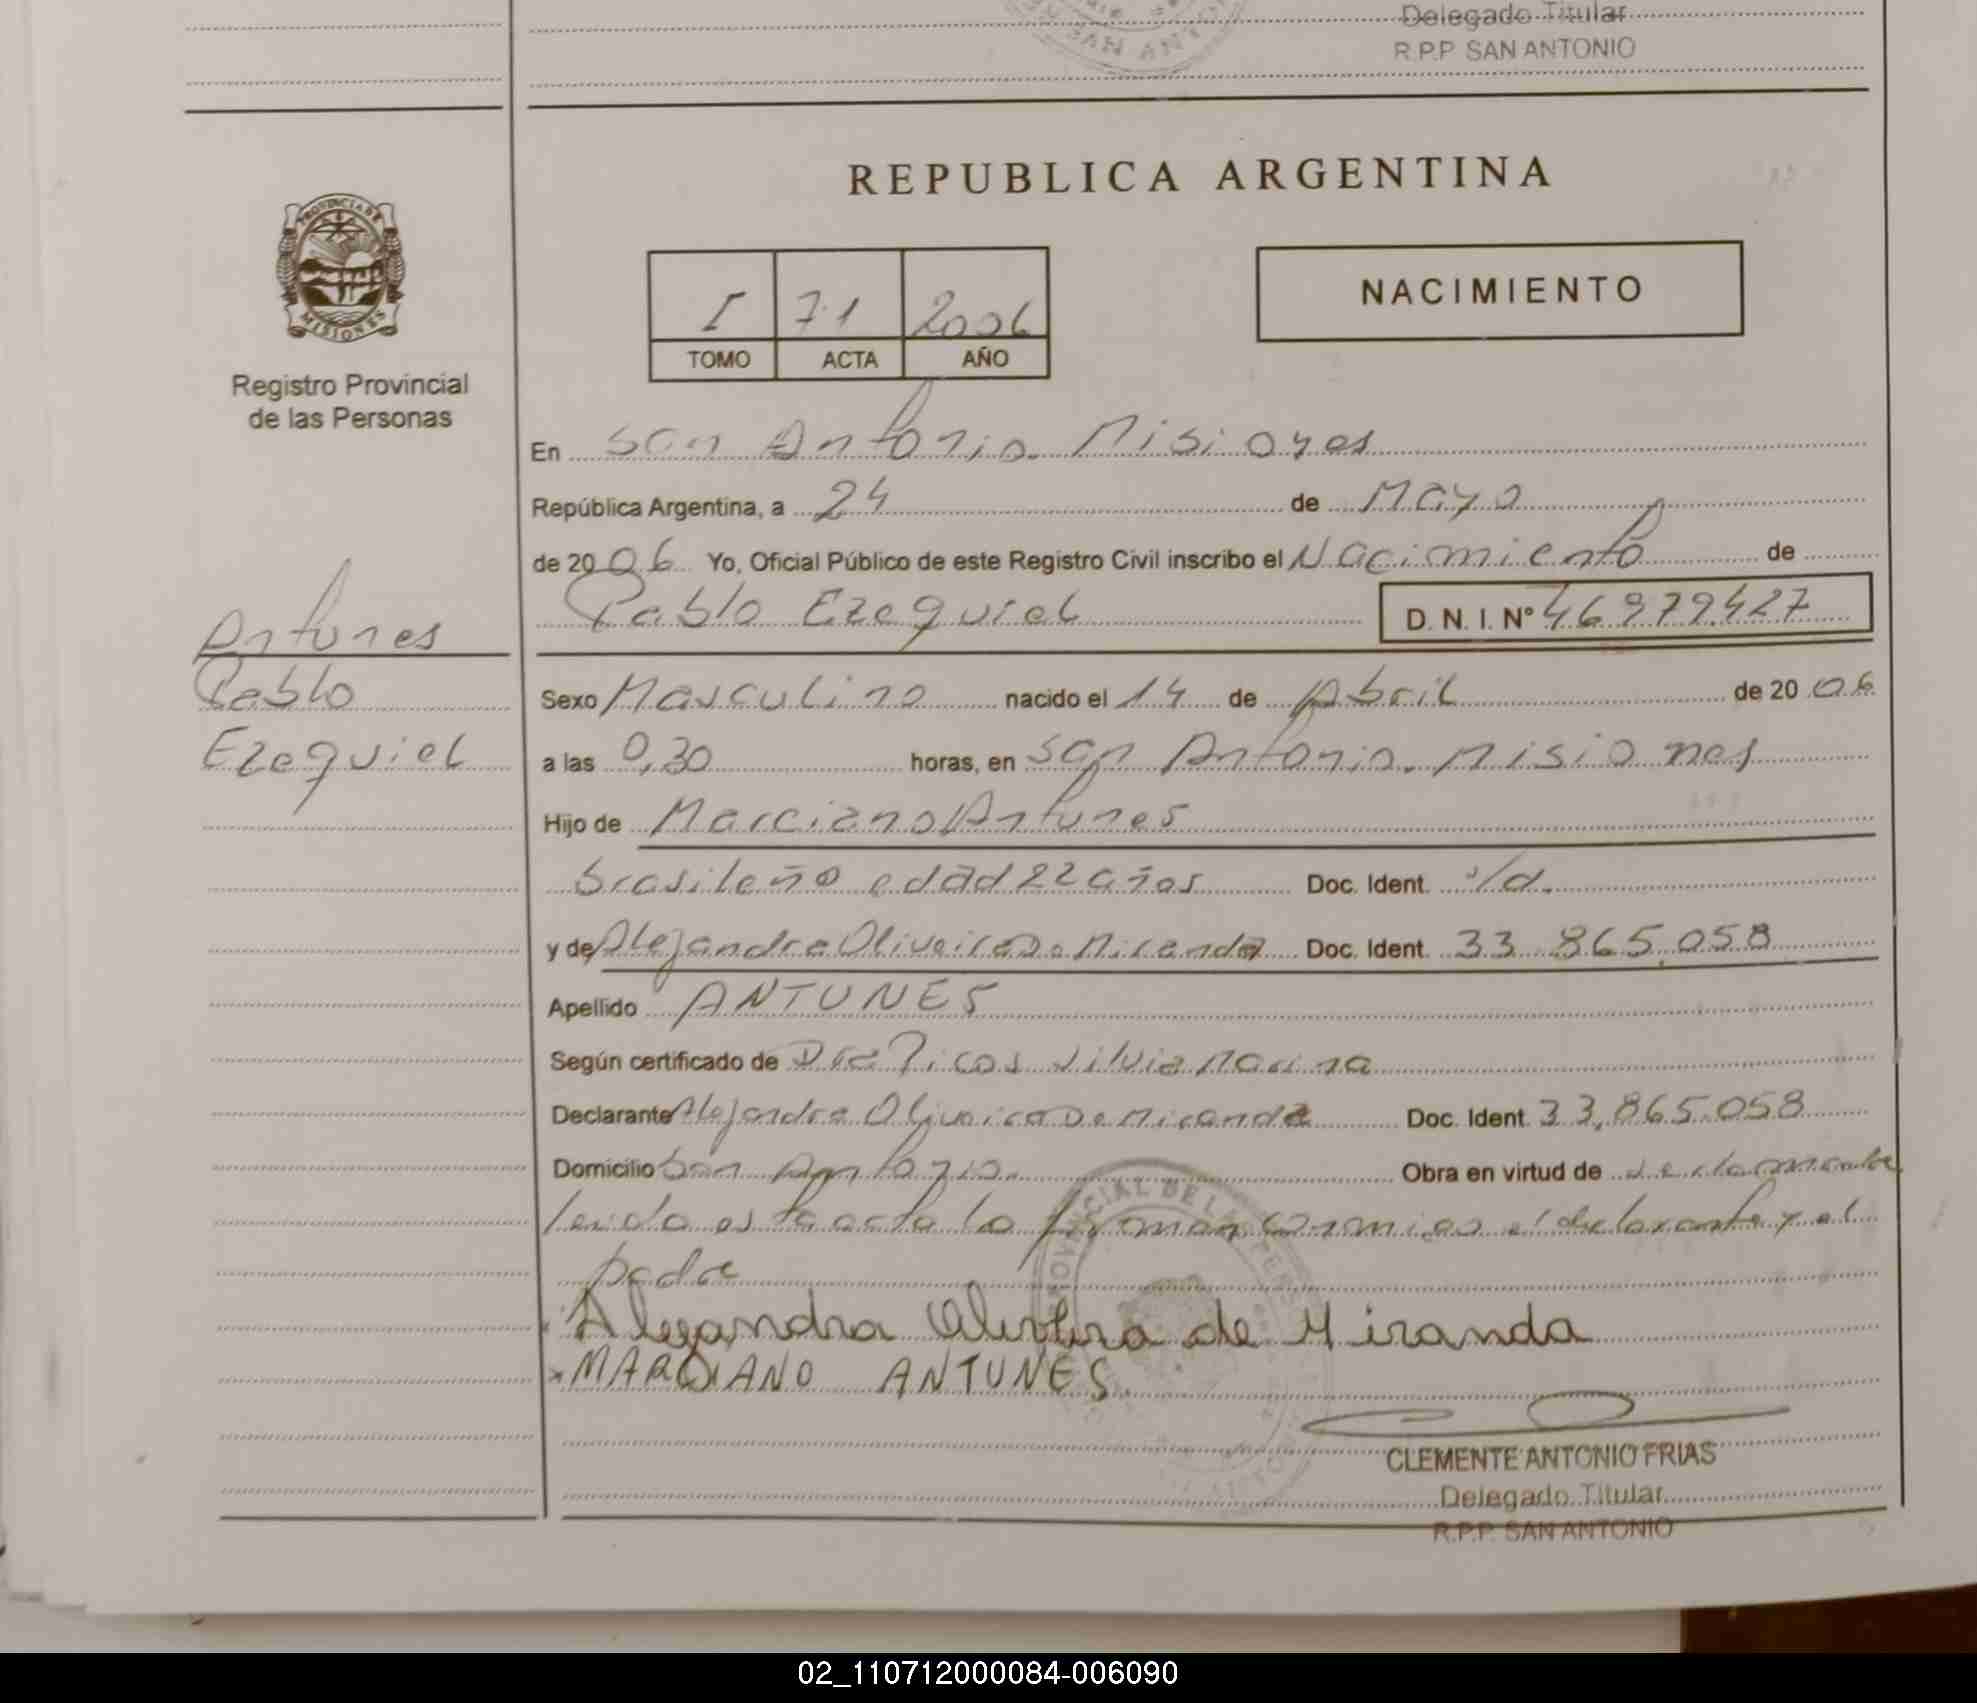 Delegado Titular
R.P.P. SAN ANTONIO
REPUBLICA ARGENTINA
PROVINCIA DE
MISIONES
Registro Provincial
de las Personas
I 71 2006
TOMO ACTA AÑO
NACIMIENTO
En San Antonio. Misiones
República Argentina, a 24 de Mayo
de 2006 Yo, Oficial Público de este Registro Civil inscribo el Nacimiento de
Pablo Ezequiel D. N. I. Nº 46979427
Antunes
Pablo
Ezequiel
Sexo Masculino nacido el 14 de Abril de 2006
a las 0,30 horas, en San Antonio. Misiones
Hijo de Marciano Antunes
brasileño edad 22 años Doc. Ident. s/d.
y de Alejandra Oliveira De Miranda Doc. Ident. 33.865.058
Apellido ANTUNES
Según certificado de Dra Picos Silvia Marina
Declarante Alejandra Oliveira De Miranda Doc. Ident. 33.865.058
Domicilio San Antonio. Obra en virtud de
leida esta acta lo firman conmigo el declarante y el
padre
Alejandra Oliveira de Miranda
MARCIANO ANTUNES
CLEMENTE ANTONIO FRIAS
Delegado Titular
R.P.P. SAN ANTONIO
02_110712000084-006090